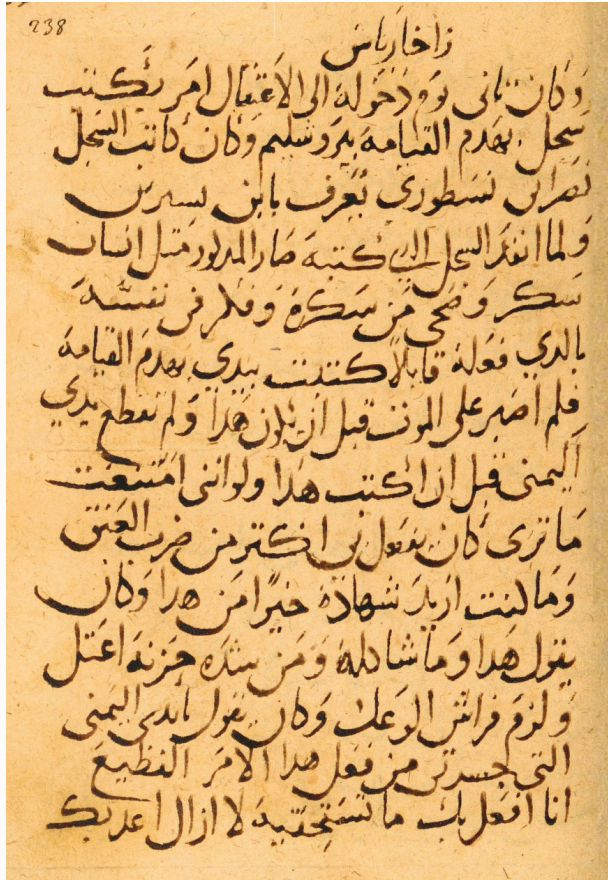 238
زاخارياس
وكان تاني يوم دخوله الى الاعتقال امر بكتب
سجل بهدم القيامه بيروشليم وكان كاتب السجل
نصراني نسطوري يعرف بابن بسيرين
ولما انفد السجل الدي كتبه صار المدلور متل انسان
سكر وضحى من سكره وفكر في نفسه
بالدي فعله قايلاً كتبت بيدي بهدم القيامه
فلم اصبر على الموت قبل ان يكون هدا ولم تقطع يدي
اليمنى قبل ان اكتب هدا ولو انني امتنعت
ما ترى كان يفعل بي اكتر من ضرب العنق
وما كنت اريد شهاده خيرا من هدا وكان
يقول هدا وما شاكله ومن شده حزنه اعتل
ولزم فراش الوعك وكان يقول يايدي اليمنى
التي جسرتي من فعل هدا الامر الفظيع
انا افعل بك ما تستحقيه لا ازال اعدبك